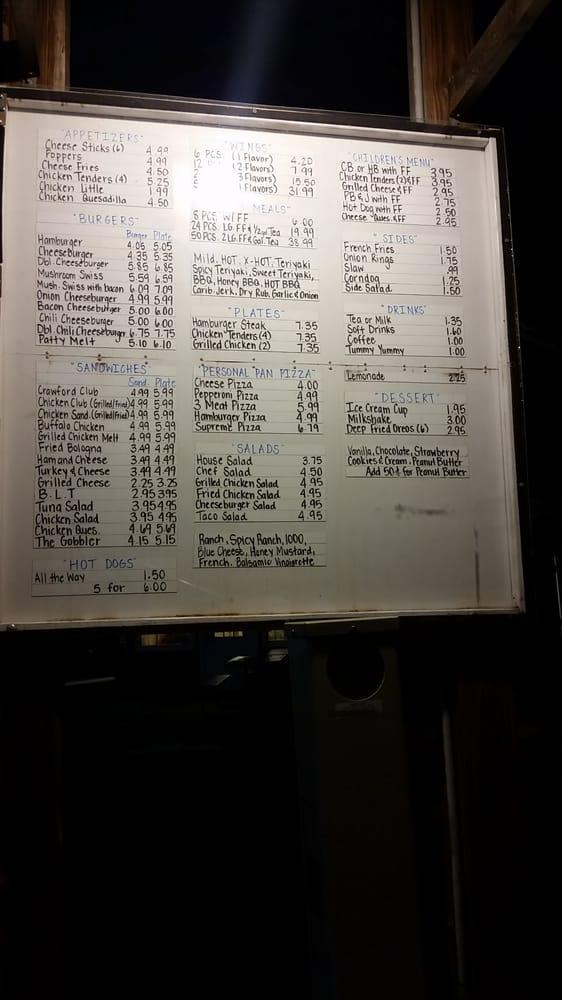 "APPETIZERS"
Cheese Sticks (6) 4.99
Poppers 4.99
Cheese Fries 4.50
Chicken Tenders (4) 5.25
Chicken Little 1.99
Chicken Quesadilla 4.50
"BURGERS"
Burger Plate
Hamburger 4.05 5.05
Cheeseburger 4.35 5.35
Dbl. Cheeseburger 5.85 6.85
Mushroom Swiss 5.59 6.59
Mush. Swiss with bacon 6.09 7.09
Onion Cheeseburger 4.99 5.99
Bacon Cheeseburger 5.00 6.00
Chili Cheeseburger 5.00 6.00
Dbl. Chili Cheeseburger 6.75 7.75
Patty Melt 5.10 6.10
"SANDWICHES"
Sand. Plate
Crawford Club 4.99 5.99
Chicken Club (Grilled/Fried) 4.99 5.99
Chicken Sand. (Grilled/Fried) 4.99 5.99
Buffalo Chicken 4.99 5.99
Grilled Chicken Melt 4.99 5.99
Fried Bologna 3.49 4.49
Ham and Cheese 3.49 4.49
Turkey & Cheese 3.49 4.49
Grilled Cheese 2.25 3.25
B.L.T 2.95 3.95
Tuna Salad 3.95 4.95
Chicken Salad 3.95 4.95
Chicken Ques. 4.69 5.69
The Gobbler 4.15 5.15
"HOT DOGS"
All the Way 1.50
5 for 6.00
"WINGS"
6 PCS. (1 Flavor) 4.20
12 (2 Flavors) 7.99
3 Flavors) 15.50
Flavors) 31.99
MEALS"
8 PCS. W/ FF 6.00
24 PCS. LG. FF & 1/2 gal Tea 19.99
50 PCS. 2 LG. FF & Gal. Tea 38.99
Mild, HOT, X-HOT, Teriyaki
Spicy Teriyaki, Sweet Teriyaki,
BBQ, Honey BBQ, HOT BBQ
Carib. Jerk, Dry Rub, Garlic & Onion
"PLATES"
Hamburger Steak 7.35
Chicken Tenders (4) 7.35
Grilled Chicken (2) 7.35
"PERSONAL PAN PIZZA"
Cheese Pizza 4.00
Pepperoni Pizza 4.99
3 Meat Pizza 5.99
Hamburger Pizza 4.99
Supreme Pizza 6.79
"SALADS"
House Salad 3.75
Chef Salad 4.50
Grilled Chicken Salad 4.95
Fried Chicken Salad 4.95
Cheeseburger Salad 4.95
Taco Salad 4.95
Ranch, Spicy Ranch, 1000,
Blue Cheese, Honey Mustard,
French, Balsamic Vinaigrette
"CHILDREN'S MENU"
CB or HB with FF 3.95
Chicken Tenders (2) & FF 3.95
Grilled Cheese & FF 2.95
PB & J with FF 2.75
Hot Dog with FF 2.50
Cheese Ques. & FF 2.95
"SIDES"
French Fries 1.50
Onion Rings 1.75
Slaw .99
Corndog 1.25
Side Salad 1.50
"DRINKS"
Tea or Milk 1.35
Soft Drinks 1.60
Coffee 1.00
Tummy Yummy 1.00
Lemonade 2.25
"DESSERT"
Ice Cream Cup 1.95
Milkshake 3.00
Deep Fried Oreos (6) 2.95
Vanilla, Chocolate, Strawberry
Cookies & Cream, Peanut Butter
Add 50¢ for Peanut Butter